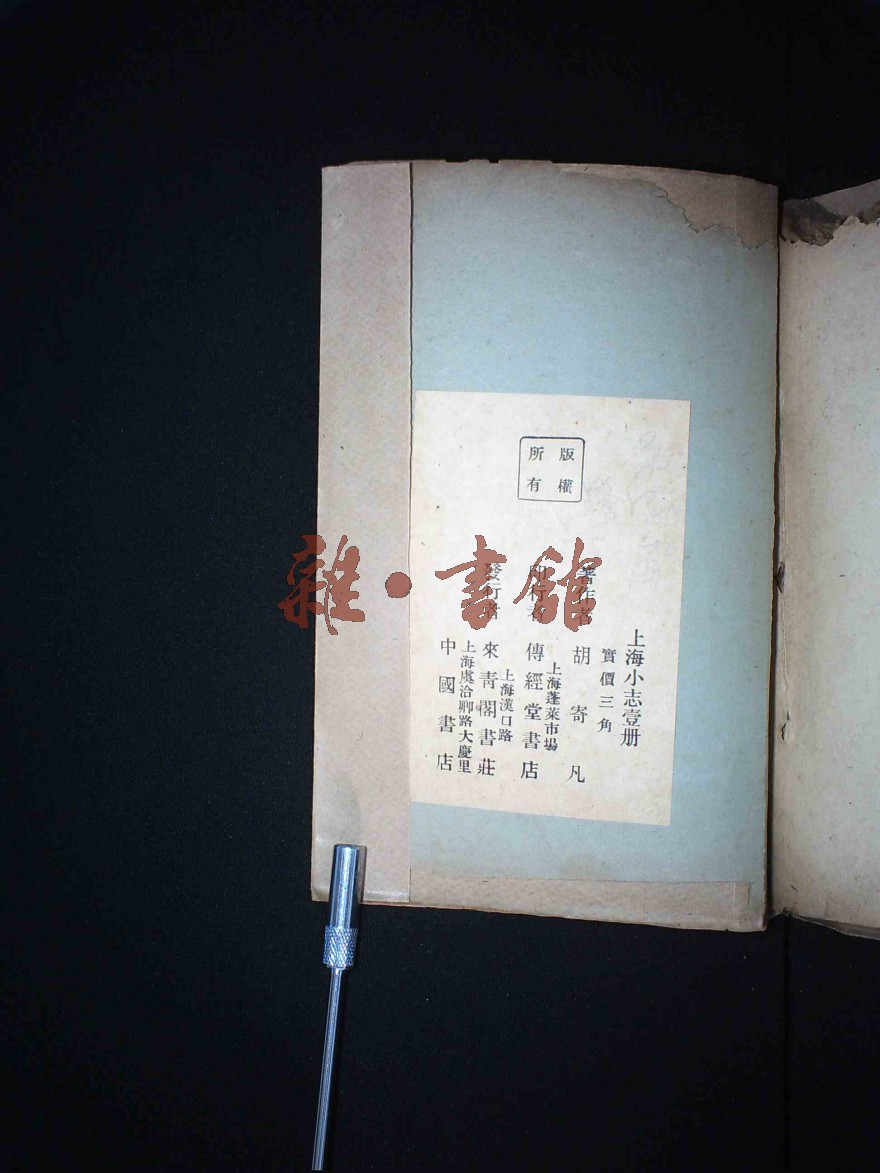 版權
所有
上海小志壹册
實價三角
著作者 胡寄凡
上海蓬萊市場
印行者 傳經堂書店
上海漢口路
發行者 來青閣書莊
上海虞洽卿路大慶里
中國書店
雜·書館